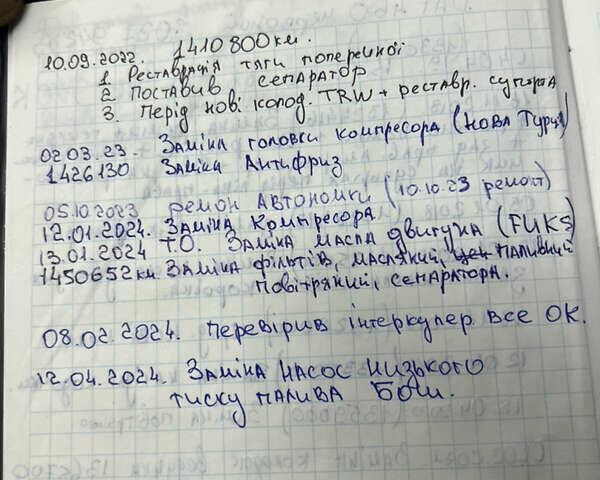 10.09.2022. 1410800км.
1. Реставрація тяги поперечної
2. Поставив сепаратор
3. Перід нові колод. TRW + реставр. супорта
02.03.23. Заміна головки компресора (нова Турція)
1426130 Заміна Антифриз
05.10.2023 ремон Автономки (10.10.23 ремонт)
12.01.2024. Заміна Компресора.
13.01.2024 Т.О. Заміна масла двигуна (FUKS)
1450652км Заміна фільтів, масляний, паливний
повітряний, сепаратора.
08.02.2024. перевірив інтеркулер все ОК.
12.04.2024. Заміна насос низького
тиску палива Бош.